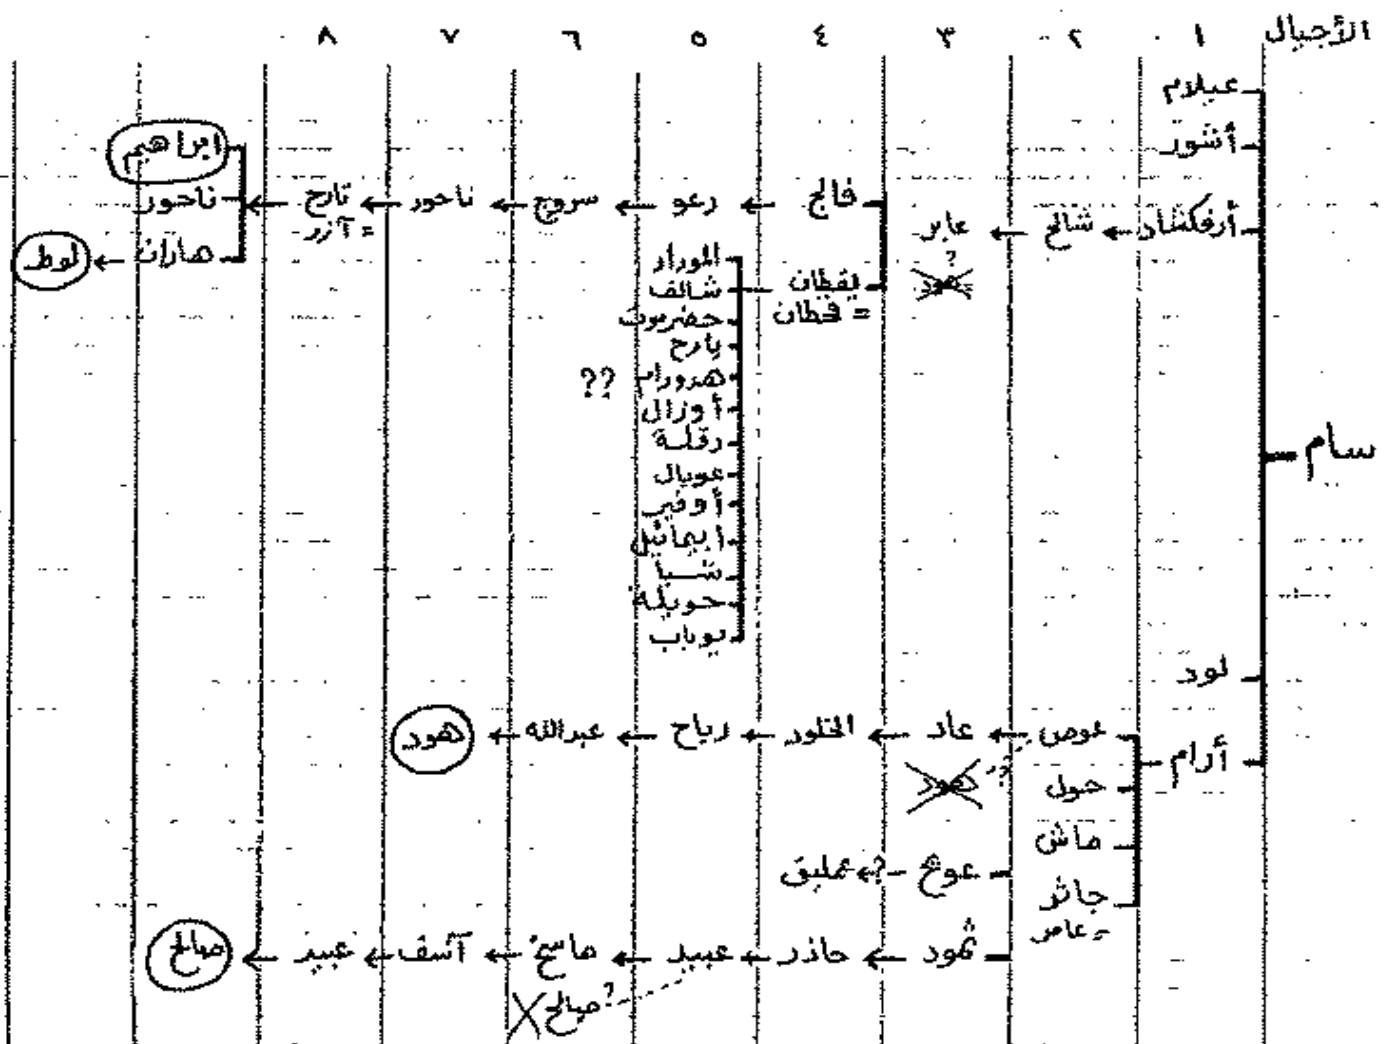 الأجيال ١ ٢ ٣ ٤ ٥ ٦ ٧ ٨
سام
عيلام
أشور
أرفكشاد شالخ عابر
? هود
فالج رعو سروج ناحور تارح
= آزر
ابراهيم
ناحور
هاران لوط
يقطان
= قحطان
الموداد
شالف
حضرموت
يارح
هدورام
??
أوزال
دقلة
عوبال
أوفير
أبيمائيل
شبا
حويلة
يوباب
لود
أرام
عوص عاد الخلود رباح عبدالله هود
? هود
حول
ماش
جاثر
= عامر
عوج ? عمليق
ثمود حاذر عبيد ماسخ آسف عبيد صالح
? صالح